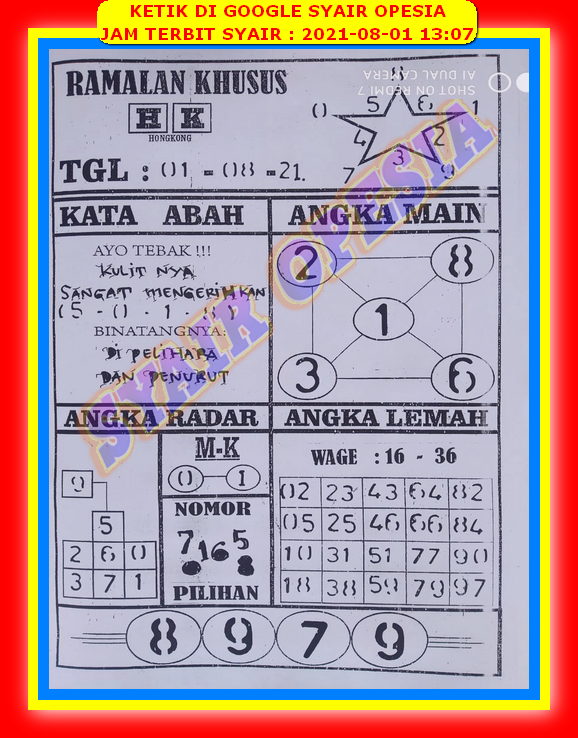 KETIK DI GOOGLE SYAIR OPESIA
JAM TERBIT SYAIR : 2021-08-01 13:07
RAMALAN KHUSUS
H K
HONGKONG
TGL : 01 - 08 - 21.
8
0 5 6 1
4 2
3
7 9
SHOT ON REDMI 7
AI DUAL CAMERA
KATA ABAH
AYO TEBAK !!!
KULIT NYA
SANGAT MENGERIHKAN
(5 - 0 - 1 - 8)
BINATANGNYA:
DI PELIHARA
DAN PENURUT
ANGKA MAIN
2 8
1
3 6
SYAIR OPESIA
ANGKA RADAR
9
5
2 6 0
3 7 1
M-K
0 1
NOMOR
7 16 5
8
PILIHAN
ANGKA LEMAH
WAGE : 16 - 36
02 23 43 64 82
05 25 46 66 84
10 31 51 77 90
18 38 59 79 97
8 9 7 9